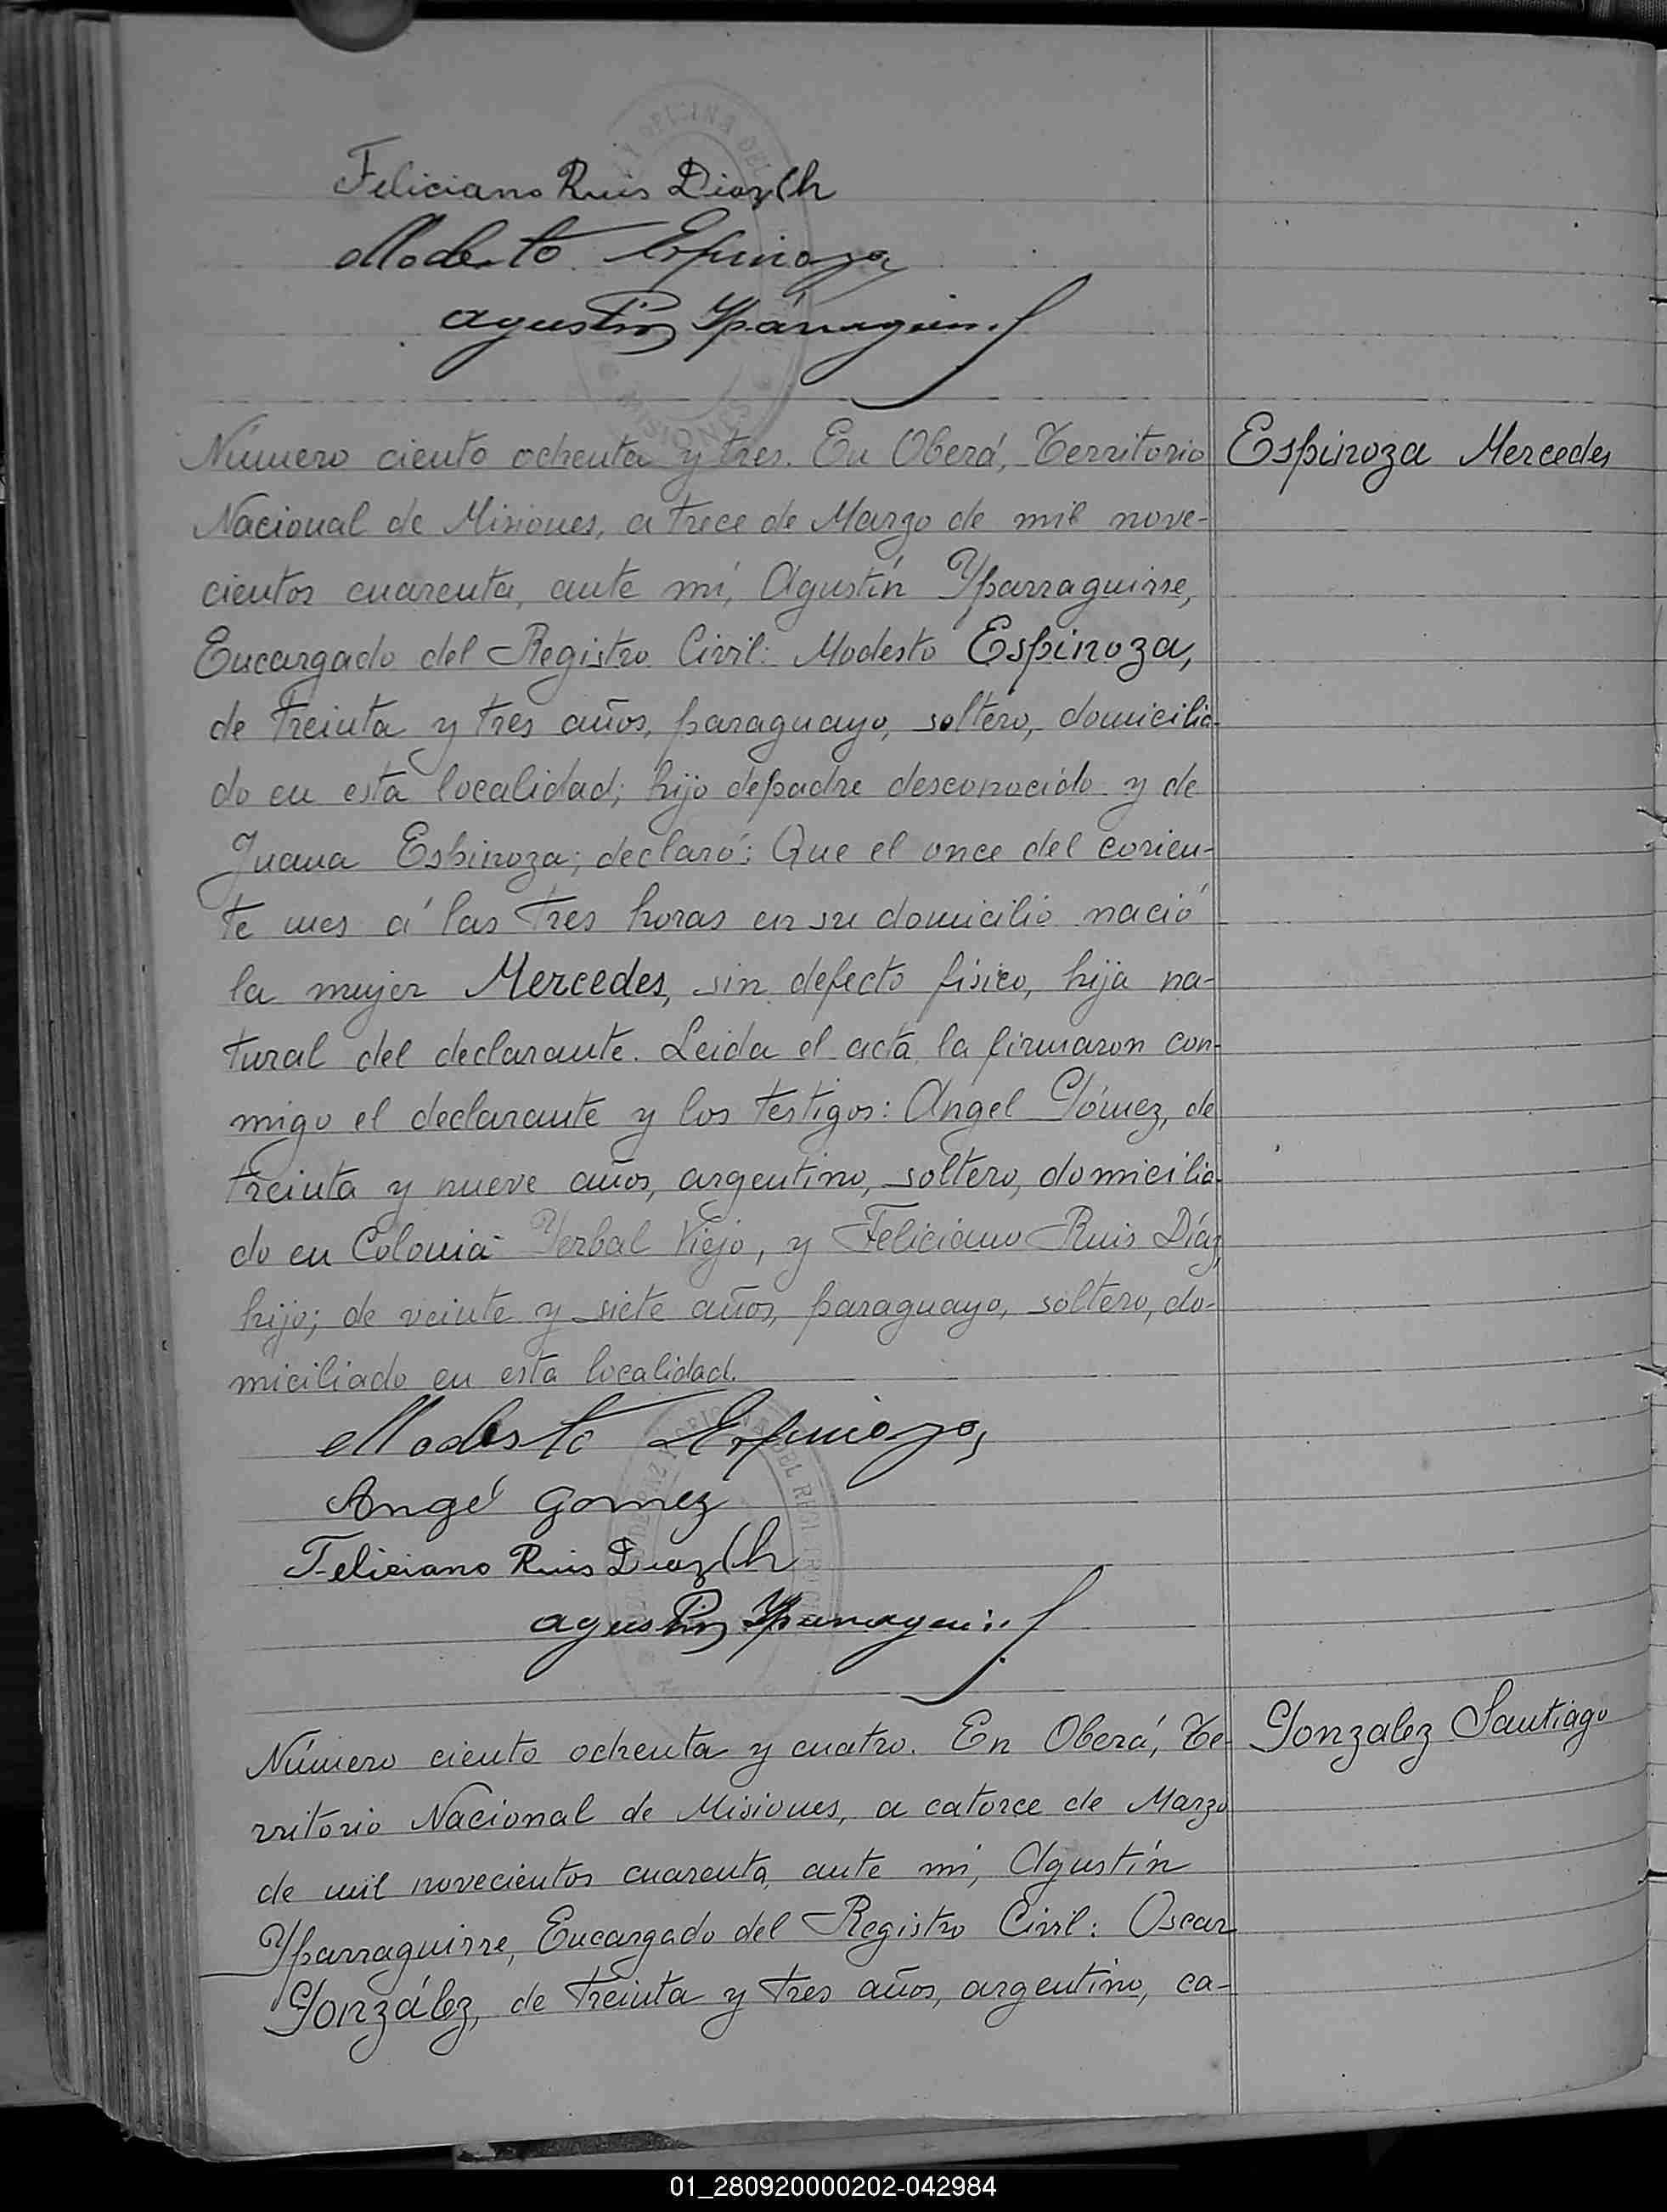 Feliciano Ruis Diaz (h
Modesto Espinoza
Agustin Yparraguirre
Número ciento ochenta y tres. En Oberá, Territorio
Espinoza Mercedes
Nacional de Misiones, a trece de Marzo de mil nove-
cientos cuarenta, ante mí, Agustín Yparraguirre,
Encargado del Registro Civil: Modesto Espinoza,
de treinta y tres años, paraguayo, soltero, domicilia-
do en esta localidad; hijo de padre desconocido y de
Juana Espinoza; declaró: Que el once del corien-
te mes á las tres horas en su domicilio nació
la mujer Mercedes, sin defecto físico, hija na-
tural del declarante. Leida el acta la firmaron con-
migo el declarante y los testigos: Angel Gómez, de
treinta y nueve años, argentino, soltero, domicilia-
do en Colonia Yerbal Viejo, y Feliciano Ruis Díaz,
hijo; de veinte y siete años, paraguayo, soltero, do-
miciliado en esta localidad.
Modesto Espinoza
Angel Gomez
Feliciano Ruis Diaz (h
Agustin Yparraguirre
Número ciento ochenta y cuatro. En Oberá, Te-
Gonzalez Santiago
rritorio Nacional de Misiones, a catorce de Marzo
de mil novecientos cuarenta, ante mí, Agustín
Yparraguirre, Encargado del Registro Civil: Oscar
González, de treinta y tres años, argentino, ca-
01_280920000202-042984